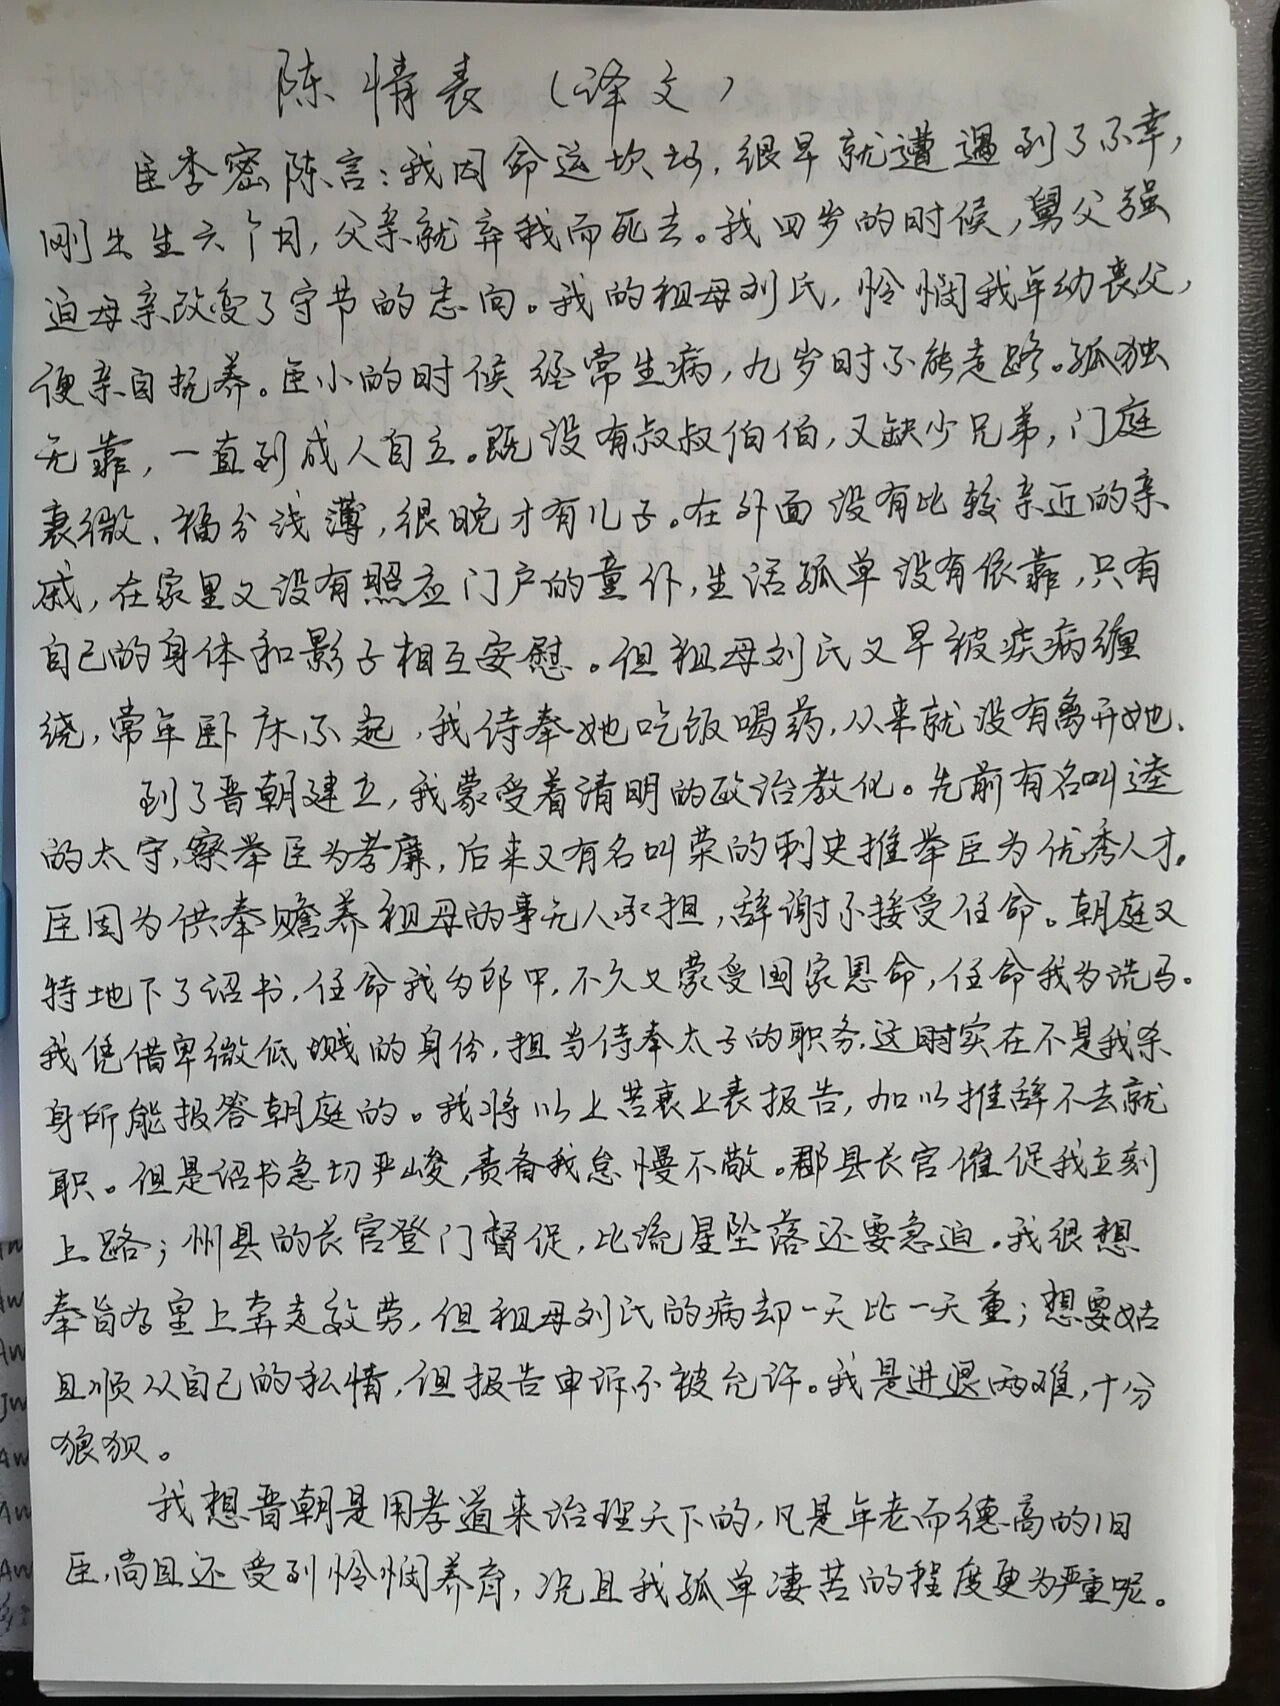 陈情表（译文）
臣李密陈言：我因命运坎坷，很早就遭遇到了不幸，
刚出生六个月，父亲就弃我而死去。我四岁的时候，舅父强
迫母亲改变了守节的志向。我的祖母刘氏，怜悯我年幼丧父，
便亲自抚养。臣小的时候经常生病，九岁时不能走路。孤独
无靠，一直到成人自立。既没有叔叔伯伯，又缺少兄弟，门庭
衰微、福分浅薄，很晚才有儿子。在外面没有比较亲近的亲
戚，在家里又没有照应门户的童仆，生活孤单没有依靠，只有
自己的身体和影子相互安慰。但祖母刘氏又早被疾病缠
绕，常年卧床不起，我侍奉她吃饭喝药，从来就没有离开她.
到了晋朝建立，我蒙受着清明的政治教化。先前有名叫逵
的太守，察举臣为孝廉，后来又有名叫荣的刺史推举臣为优秀人才。
臣因为供奉赡养祖母的事无人承担，辞谢不接受任命。朝庭又
特地下了诏书，任命我为郎中，不久又蒙受国家恩命，任命我为洗马。
我凭借卑微低贱的身份，担当侍奉太子的职务，这实在不是我杀
身所能报答朝庭的。我将以上苦衷上表报告，加以推辞不去就
职。但是诏书急切严峻，责备我怠慢不敬。郡县长官催促我立刻
上路；州县的长官登门督促，比流星坠落还要急迫。我很想
奉旨为皇上奔走效劳，但祖母刘氏的病却一天比一天重；想要姑
且顺从自己的私情，但报告申诉不被允许。我是进退两难，十分
狼狈。
我想晋朝是用孝道来治理天下的，凡是年老而德高的旧
臣，尚且还受到怜悯养育，况且我孤单凄苦的程度更为严重呢。